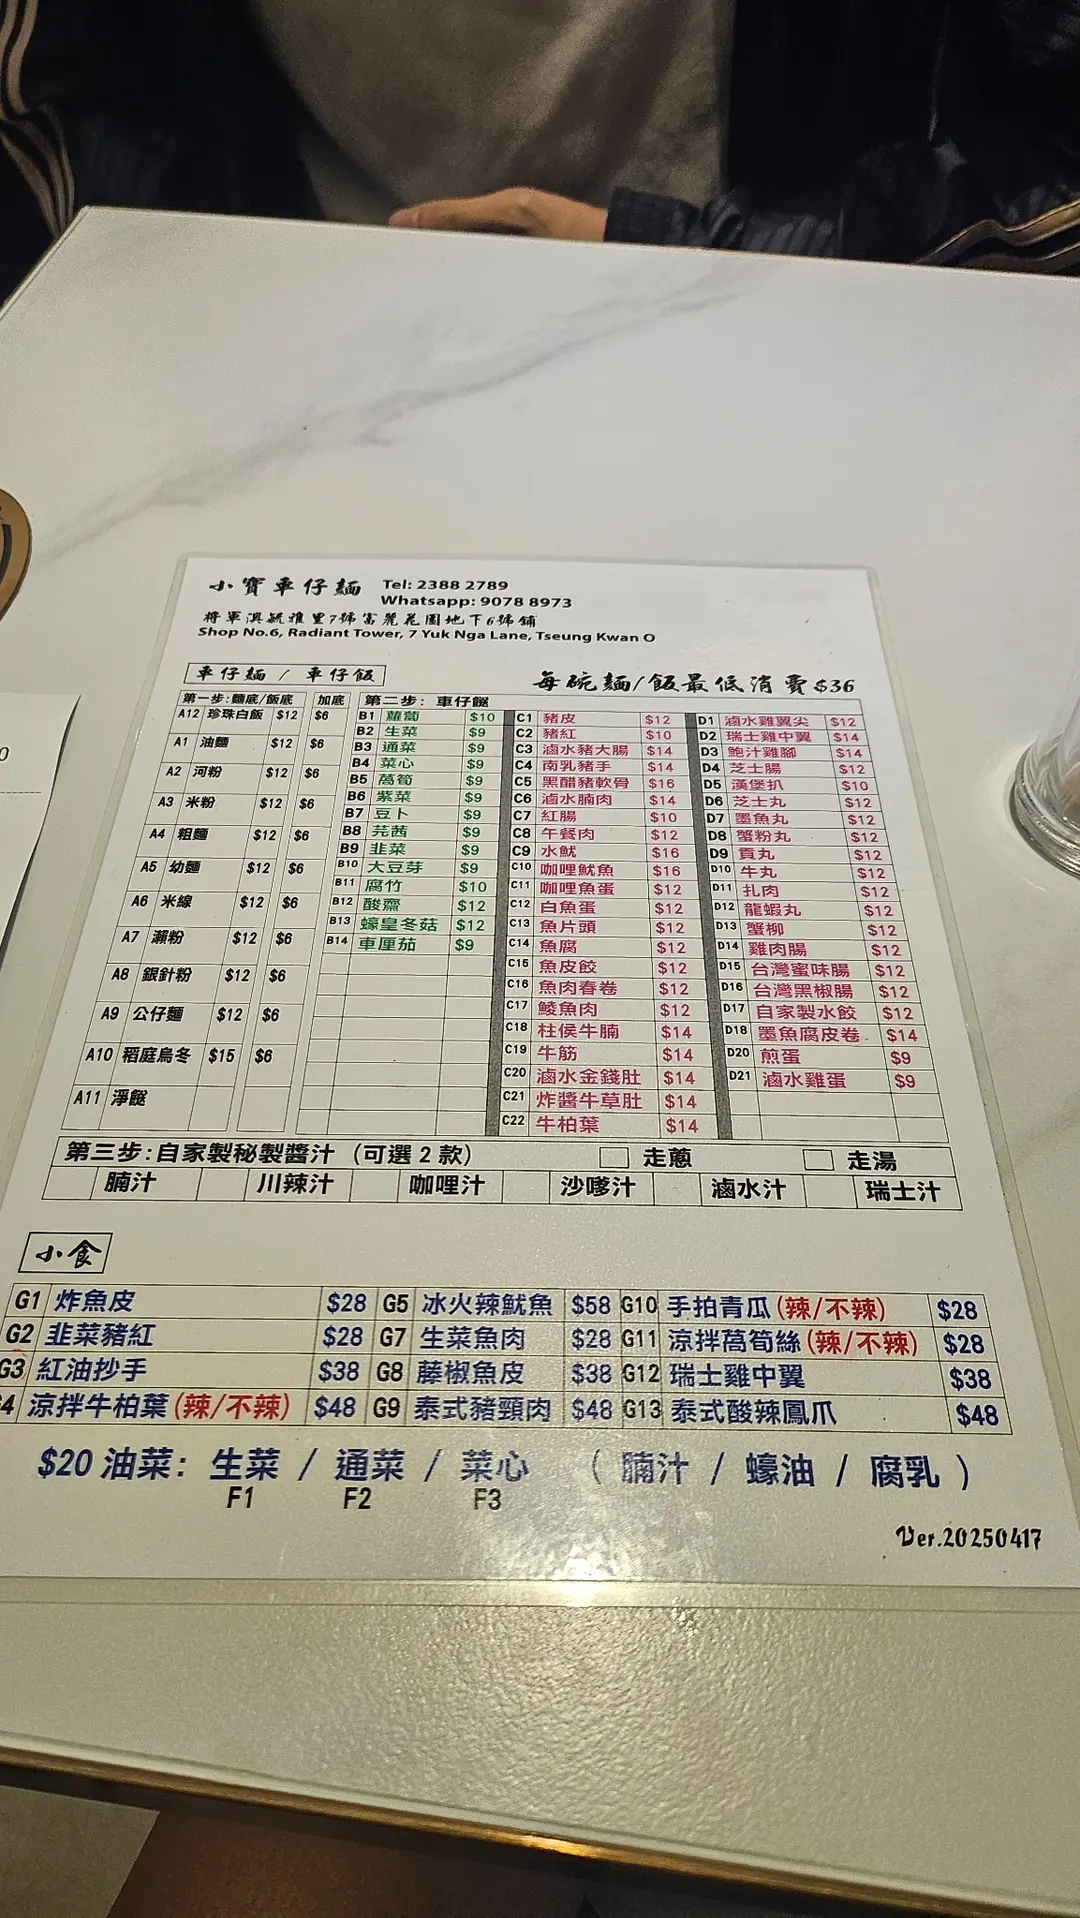 小寶車仔麵 Tel: 2388 2789
Whatsapp: 9078 8973
將軍澳毓雅里7號富麗花園地下6號舖
Shop No.6, Radiant Tower, 7 Yuk Nga Lane, Tseung Kwan O
車仔麵 / 車仔飯 每碗麵/飯最低消費$36
第一步:麵底/飯底 加底
A12 珍珠白飯 $12 $6
A1 油麵 $12 $6
A2 河粉 $12 $6
A3 米粉 $12 $6
A4 粗麵 $12 $6
A5 幼麵 $12 $6
A6 米線 $12 $6
A7 瀨粉 $12 $6
A8 銀針粉 $12 $6
A9 公仔麵 $12 $6
A10 稻庭烏冬 $15 $6
A11 淨餸
第二步: 車仔餸
B1 蘿蔔 $10
B2 生菜 $9
B3 通菜 $9
B4 菜心 $9
B5 萵筍 $9
B6 紫菜 $9
B7 豆卜 $9
B8 芫茜 $9
B9 韭菜 $9
B10 大豆芽 $9
B11 腐竹 $10
B12 酸齋 $12
B13 蠔皇冬菇 $12
B14 車厘茄 $9
C1 豬皮 $12
C2 豬紅 $10
C3 滷水豬大腸 $14
C4 南乳豬手 $14
C5 黑醋豬軟骨 $16
C6 滷水腩肉 $14
C7 紅腸 $10
C8 午餐肉 $12
C9 水魷 $16
C10 咖哩魷魚 $16
C11 咖哩魚蛋 $12
C12 白魚蛋 $12
C13 魚片頭 $12
C14 魚腐 $12
C15 魚皮餃 $12
C16 魚肉春卷 $12
C17 鯪魚肉 $12
C18 柱侯牛腩 $14
C19 牛筋 $14
C20 滷水金錢肚 $14
C21 炸醬牛草肚 $14
C22 牛柏葉 $14
D1 滷水雞翼尖 $12
D2 瑞士雞中翼 $14
D3 鮑汁雞腳 $14
D4 芝士腸 $12
D5 漢堡扒 $10
D6 芝士丸 $12
D7 墨魚丸 $12
D8 蟹粉丸 $12
D9 貢丸 $12
D10 牛丸 $12
D11 扎肉 $12
D12 龍蝦丸 $12
D13 蟹柳 $12
D14 雞肉腸 $12
D15 台灣蜜味腸 $12
D16 台灣黑椒腸 $12
D17 自家製水餃 $12
D18 墨魚腐皮卷 $14
D20 煎蛋 $9
D21 滷水雞蛋 $9
第三步:自家製秘製醬汁 (可選 2 款) 走蔥 走湯
腩汁 川辣汁 咖哩汁 沙嗲汁 滷水汁 瑞士汁
小食
G1 炸魚皮 $28 G5 冰火辣魷魚 $58 G10 手拍青瓜(辣/不辣) $28
G2 韭菜豬紅 $28 G7 生菜魚肉 $28 G11 涼拌萵筍絲(辣/不辣) $28
G3 紅油抄手 $38 G8 藤椒魚皮 $38 G12 瑞士雞中翼 $38
4 涼拌牛柏葉(辣/不辣) $48 G9 泰式豬頸肉 $48 G13 泰式酸辣鳳爪 $48
$20 油菜: 生菜 / 通菜 / 菜心 ( 腩汁 / 蠔油 / 腐乳 )
F1 F2 F3
Ver.20250417